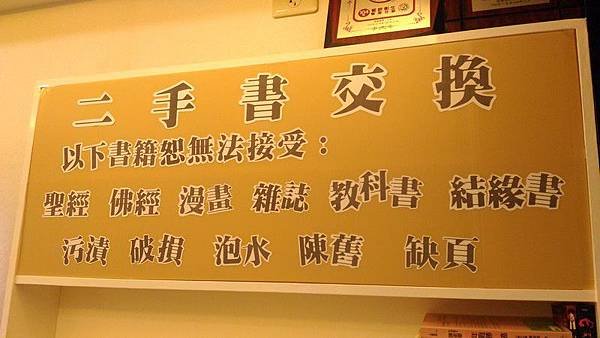 二手書交換
以下書籍恕無法接受：
聖經 佛經 漫畫 雜誌 教科書 結緣書
污漬 破損 泡水 陳舊 缺頁